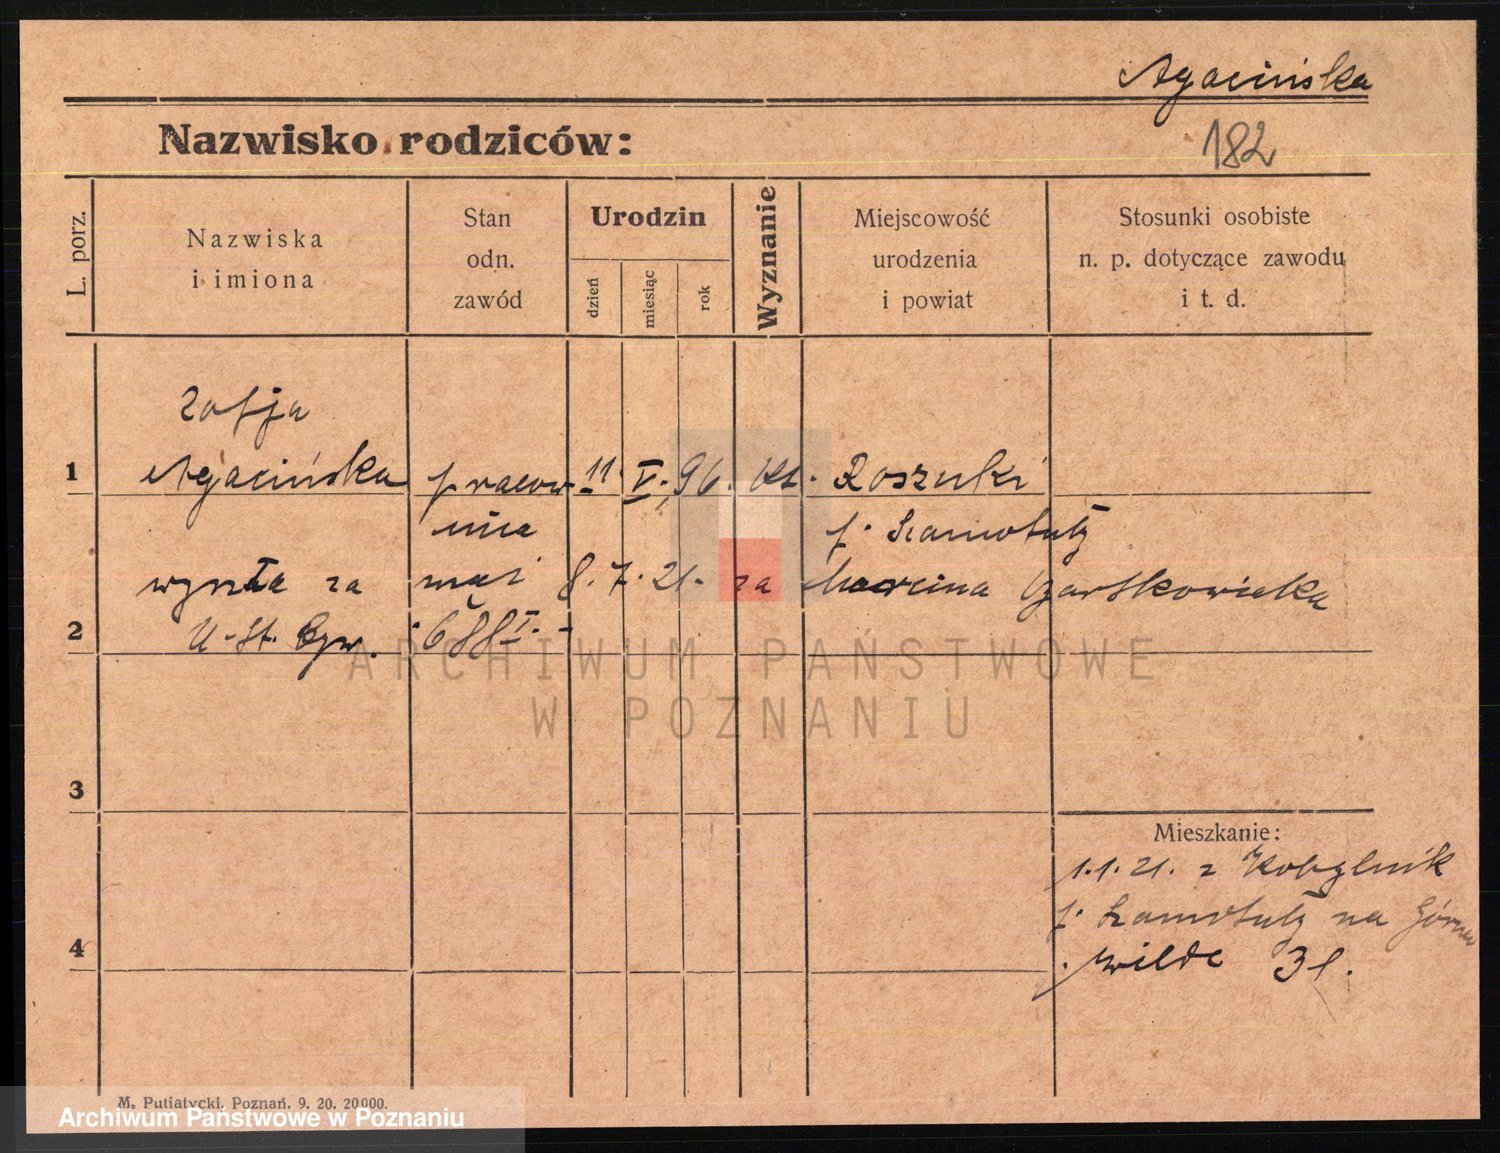 Agacińska
182
Nazwisko rodziców:
L. porz.
Nazwiska
i imiona
Stan
odn.
zawód
Urodzin
dzień
miesiąc
rok
Wyznanie
Miejscowość
urodzenia
i powiat
Stosunki osobiste
n. p. dotyczące zawodu
i t. d.
Zofja
1 Agacińska pracow 11. V. 96. kt.
nica p. Szamotuły
za mąż 8. 7. 21. za Marcina Czartkowiaka
2 U. St. 688 I.
3
Mieszkanie:
1.1.21. z Kobylnik
p. Szamotuły na Górna
4 Wilde 31.
M. Putiatycki, Poznań. 9. 20. 20000.
ARCHIWUM PAŃSTWOWE
W POZNANIU
Archiwum Państwowe w Poznaniu